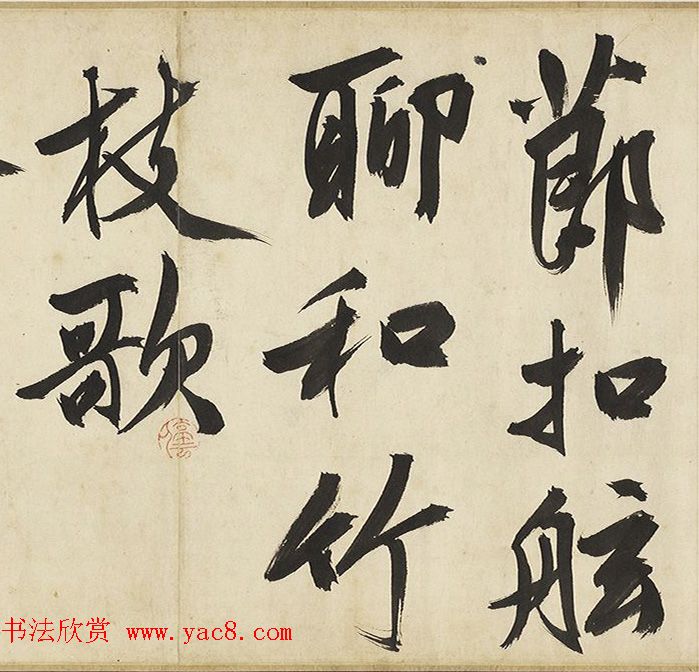 莭扣舷
聊和竹
枝歌
书法欣赏 www.yac8.com